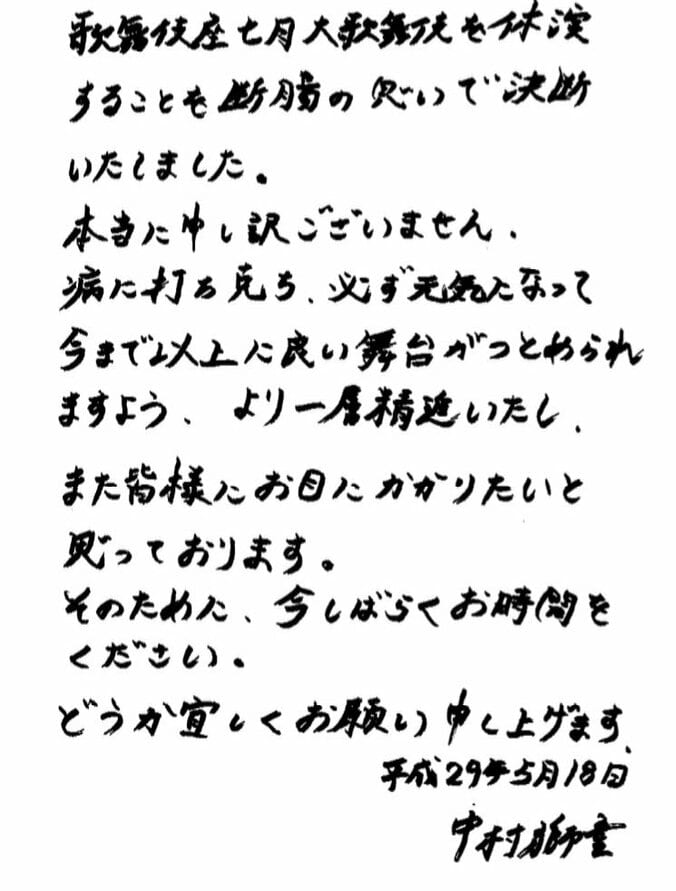 歌舞伎座七月大歌舞伎を休演
することも断腸の思いで決断
いたしました。
本当に申し訳ございません、
病に打ち克ち、必ず元気になって
今まで以上に良い舞台がつとめられ
ますよう、より一層精進いたし、
また皆様にお目にかかりたいと
思っております。
そのために、今しばらくお時間を
ください。
どうか宜しくお願い申し上げます、
平成29年5月18日
中村獅童